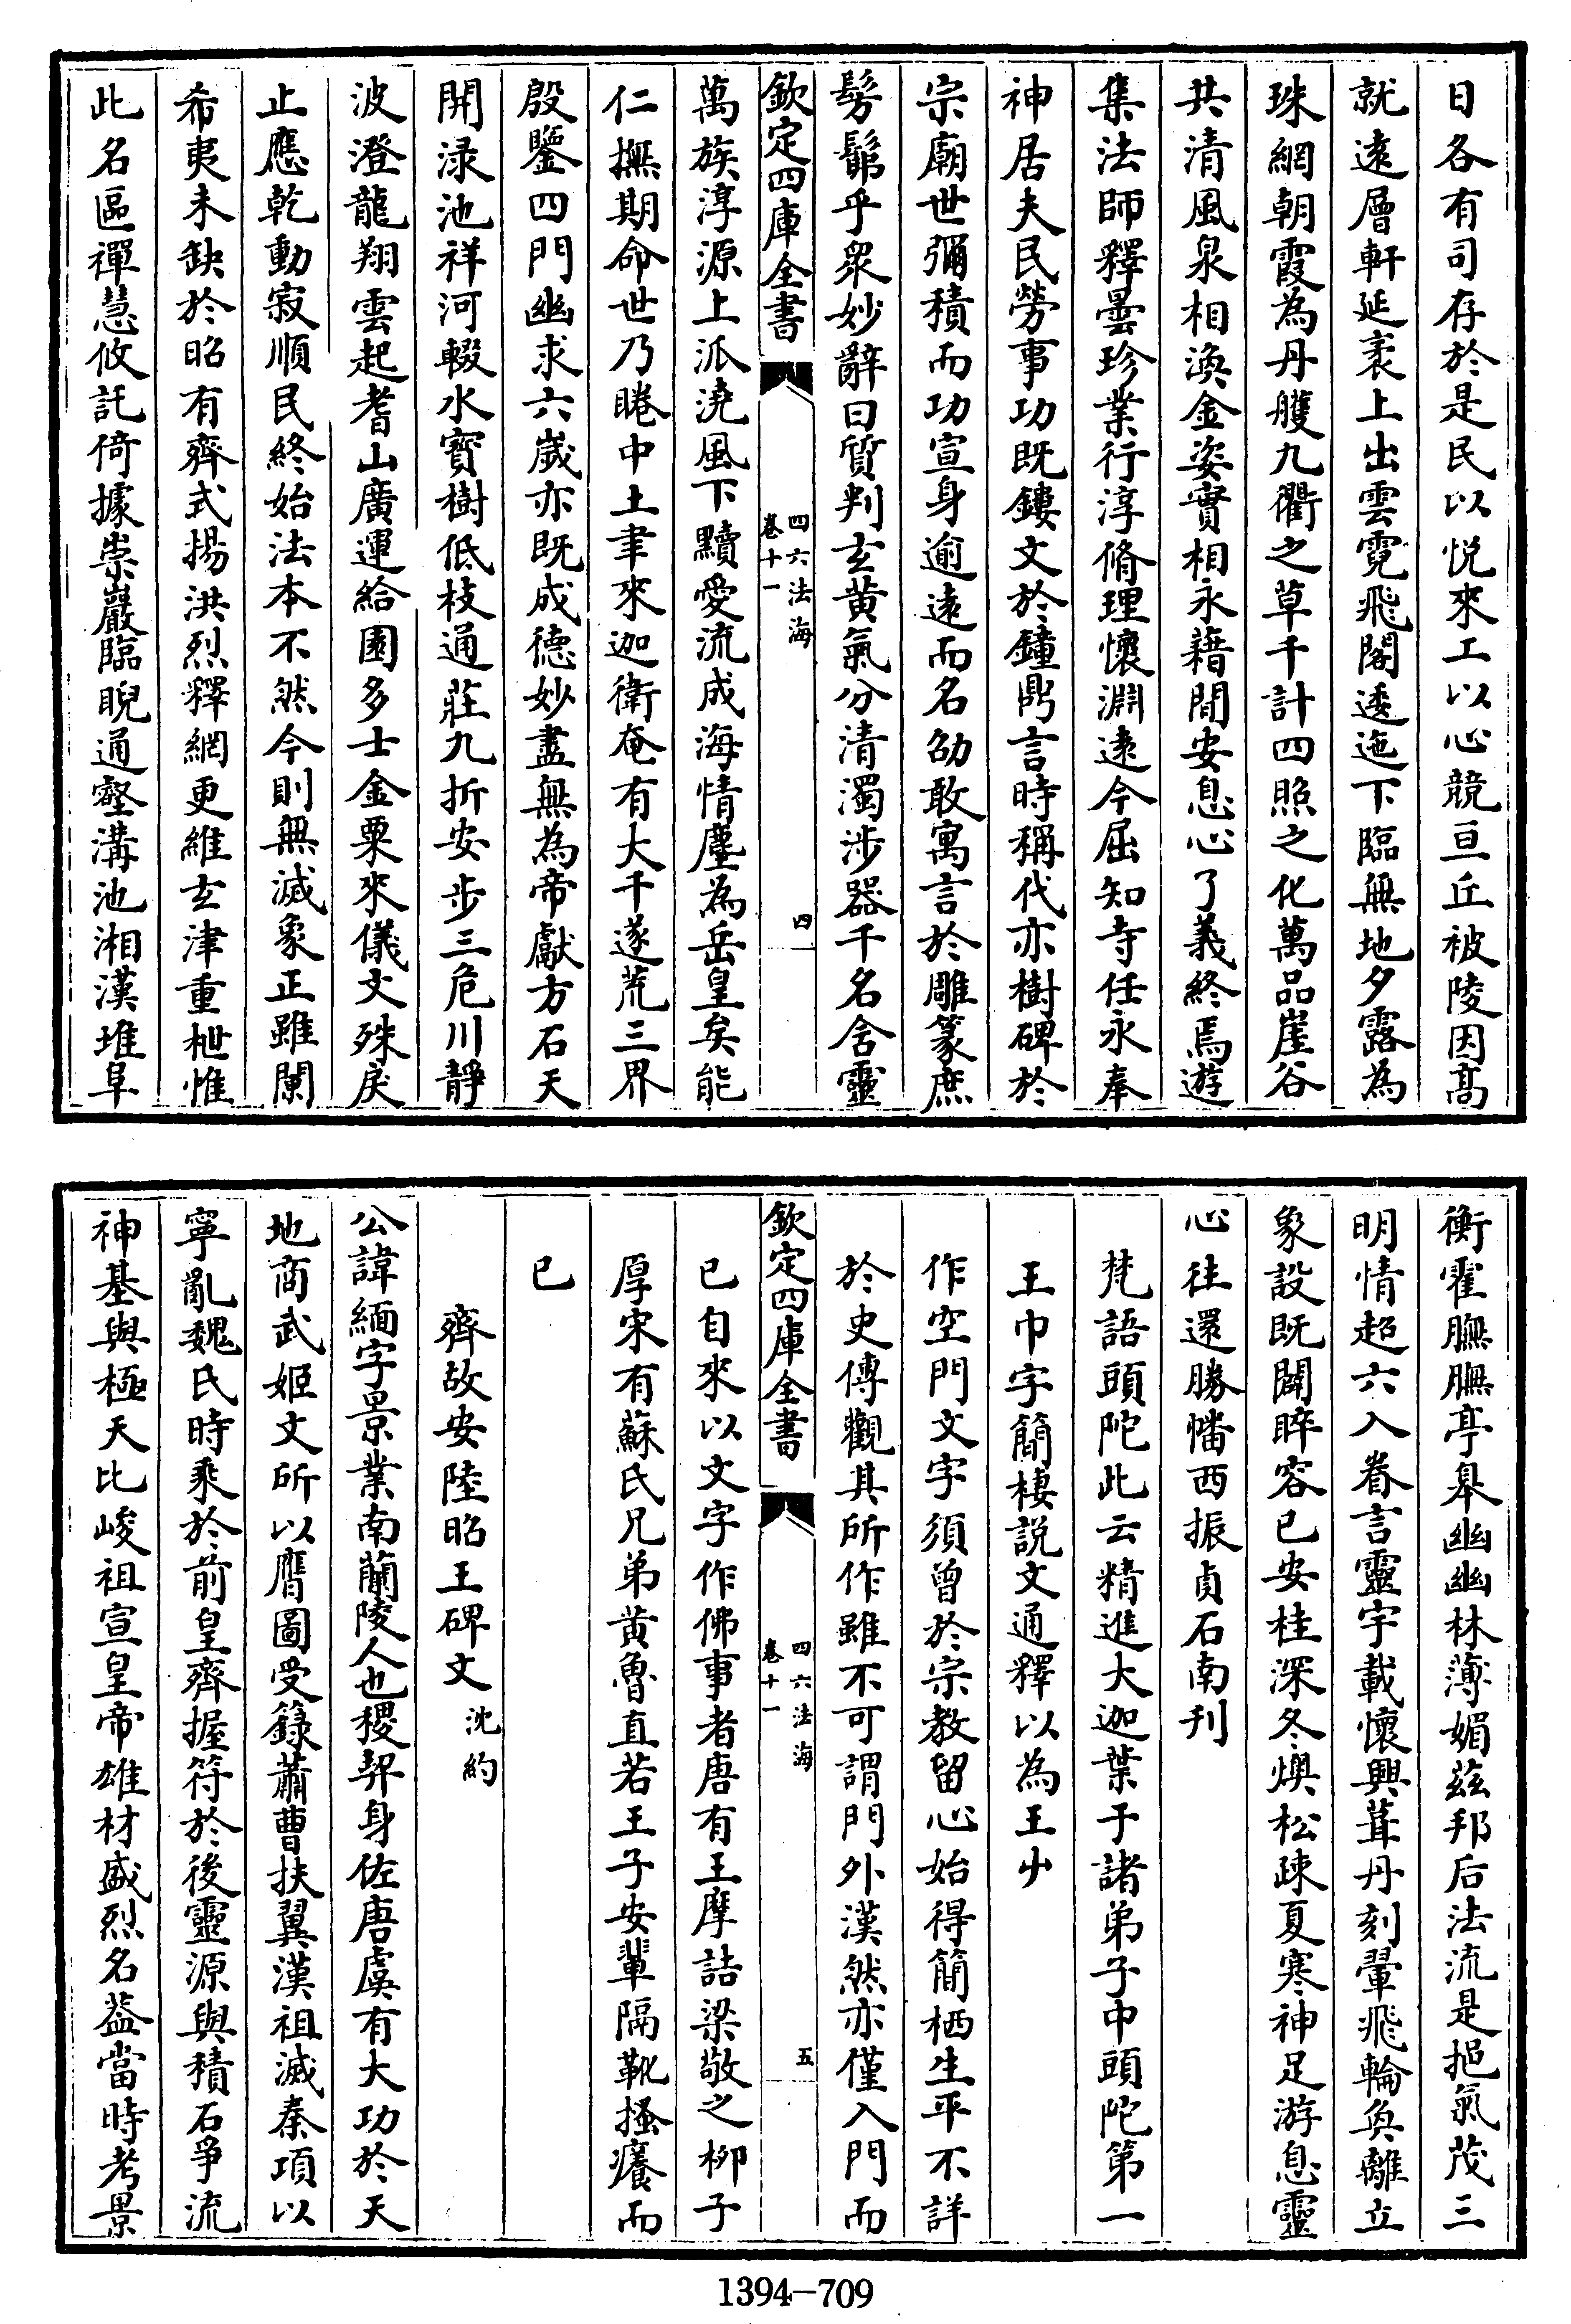 日各有司存於是民以悅來工以心競亘丘被陵因高
就遠層軒延袤上出雲霓飛閣逶迤下臨無地夕露為
珠網朝霞為丹雘九衢之草千計四照之化萬品崖谷
共清風泉相渙金姿寶相永藉閒安息心了義終焉遊
集法師釋曇珍業行淳脩理懷淵遠今屈知寺任永奉
神居夫民勞事功既鏤文於鐘鼎言時稱代亦樹碑於
宗廟世彌積而功宣身逾遠而名劭敢寓言於雕篆庶
髣髴乎衆妙辭曰質判玄黃氣分清濁涉器千名含靈
欽定四庫全書
四六法海
卷十一
四
萬族淳源上泒澆風下黷愛流成海情塵為岳皇矣能
仁撫期命世乃睠中土聿來迦衛奄有大千遂荒三界
殷鑒四門幽求六歲亦既成德妙盡無為帝獻方石天
開淥池祥河輟水寶樹低枝通莊九折安步三危川靜
波澄龍翔雲起耆山廣運給園多士金粟來儀文殊戾
止應乾動寂順民終始法本不然今則無滅象正雖闌
希夷未缺於昭有齊式揚洪烈釋網更維玄津重枻惟
此名區禪慧攸託倚據崇巖臨睨通壑溝池湘漢堆阜
衡霍膴膴亭皋幽幽林薄媚茲邦后法流是挹氣茂三
明情超六入眷言靈宇載懷興葺丹刻翬飛輪奐離立
象設既闢睟容已安桂深冬燠松疎夏寒神足游息靈
心往還勝幡西振貞石南刊
梵語頭陀此云精進大迦葉于諸弟子中頭陀第一
王巾字簡棲說文通釋以為王屮
作空門文字須曾於宗教留心始得簡栖生平不詳
於史傳觀其所作雖不可謂門外漢然亦僅入門而
欽定四庫全書
四六法海
卷十一
五
已自來以文字作佛事者唐有王摩詰梁敬之柳子
厚宋有蘇氏兄弟黃魯直若王子安輩隔靴搔癢而
已
齊故安陸昭王碑文 沈約
公諱緬字景業南蘭陵人也稷契身佐唐虞有大功於天
地商武姬文所以膺圖受籙蕭曹扶翼漢祖滅秦項以
寧亂魏氏時乘於前皇齊握符於後靈源與積石爭流
神基與極天比峻祖宣皇帝雄材盛烈名蓋當時考景
1394-709